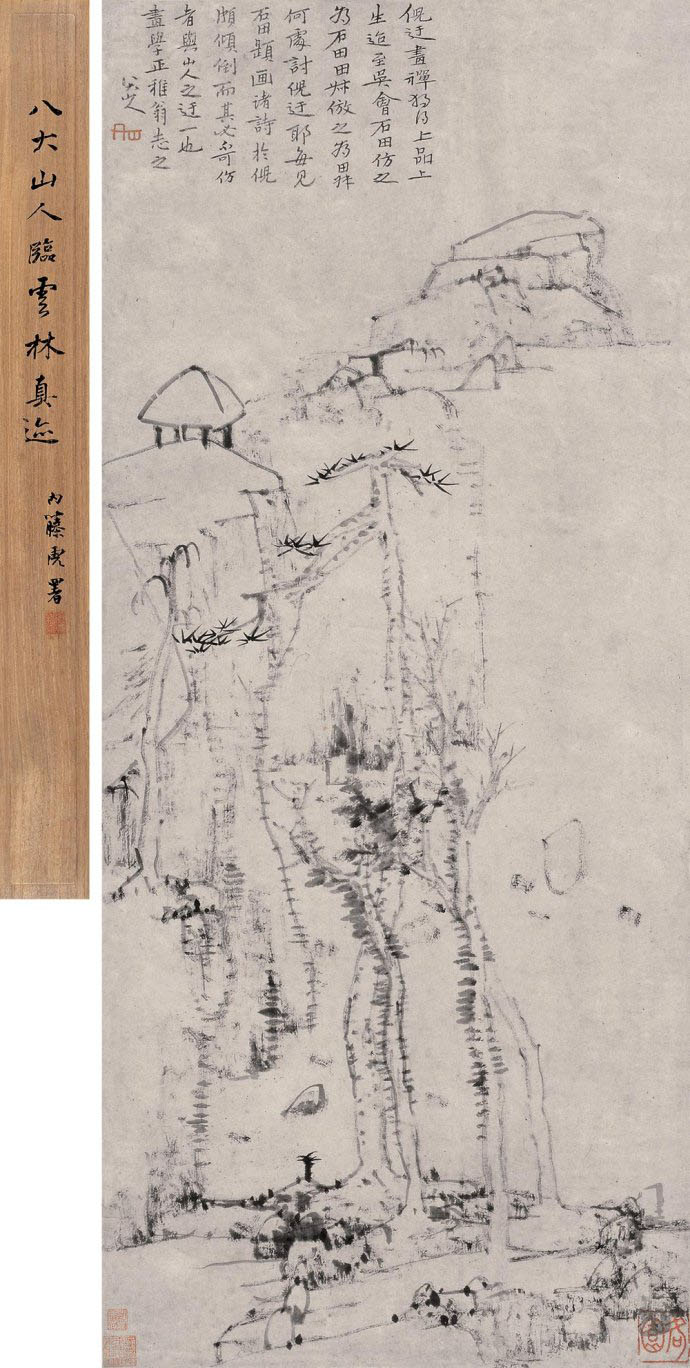 八大山人臨雲林真迹
内藤虎署
倪迂畫禪獨得上品上
生迨至吳會石田仿之
為石田田叔倣之為田叔
何處討倪迂耶每見
石田題画诸詩於倪
頗傾倒而其必不可仿
者與山人之迂一也
畫學正稚翁志之
八大山人